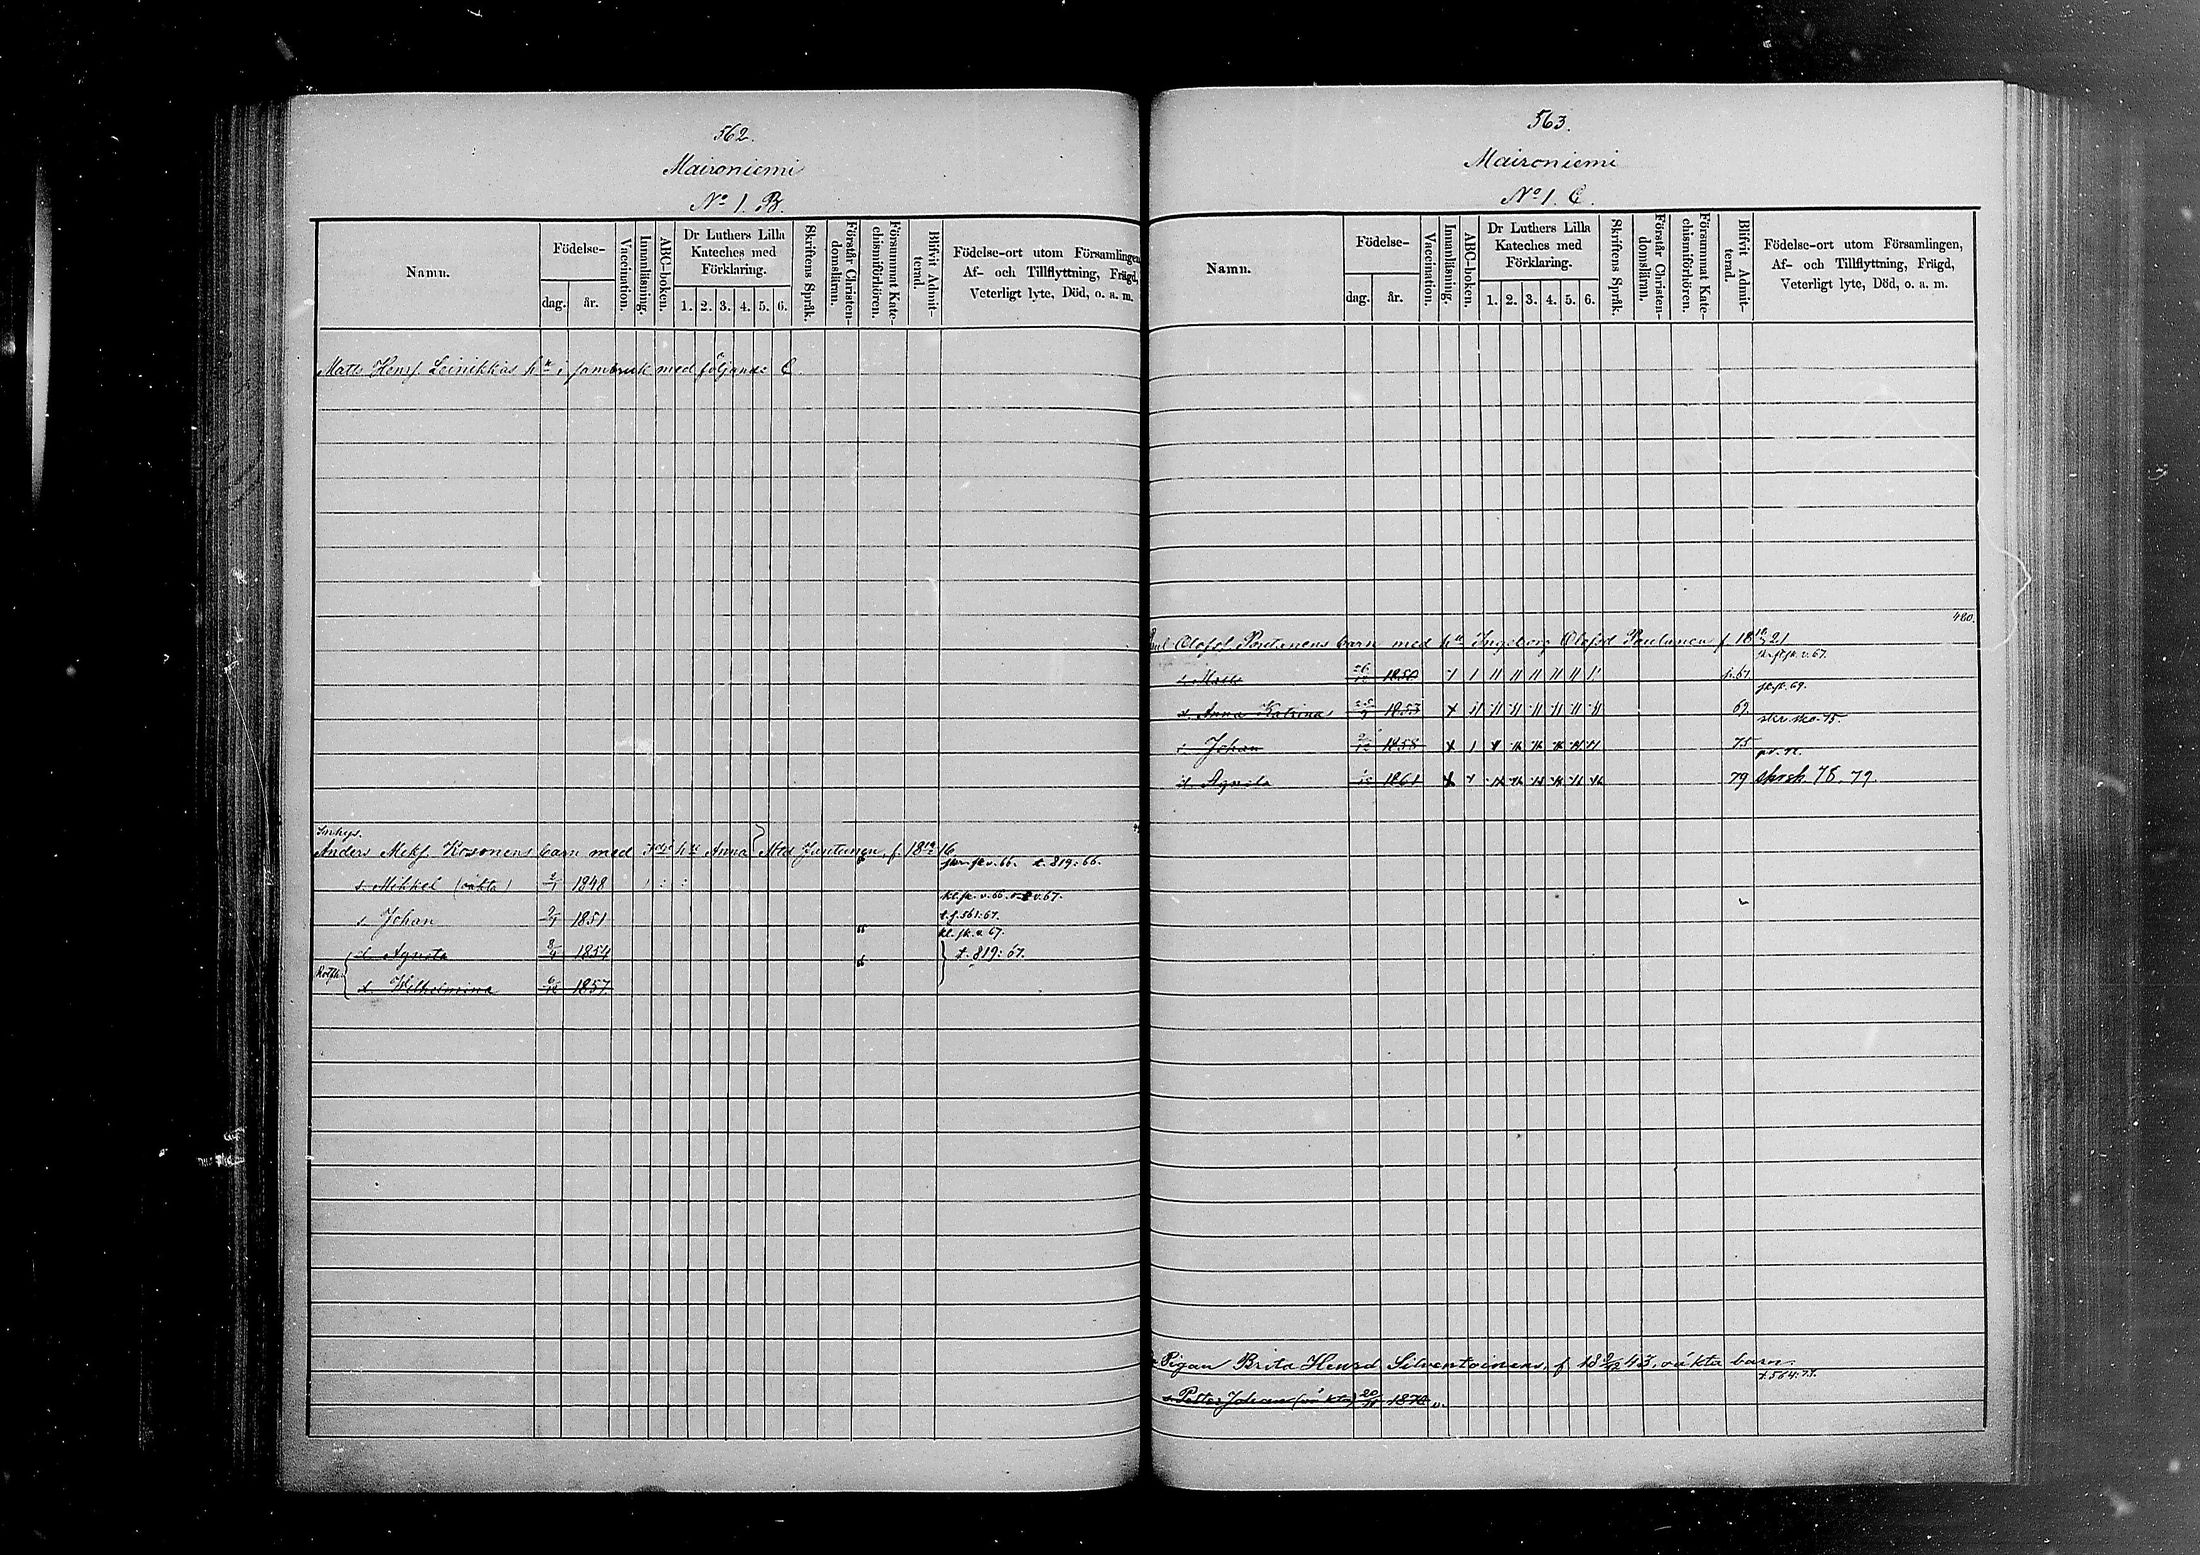 562.
Maironiemi
No 1. B.
Namn.
Födelse-
dag.
år.
Vaccination.
Innanläsning.
ABC-boken.
Dr Luthers Lilla Kateches med Förklaring.
1. 2. 3. 4. 5. 6.
Skriftens Språk.
Förstår Christendomsläran.
Försummat Katechismiförhören.
Blifvit Admitterad.
Födelse-ort utom Församlingen,
Af- och Tillflyttning, Frägd,
Veterligt lyte, Död, o. a. m.
Matts Henr. Leinikkas hu i sambruk med följande C
Inhys.
Anders Mekf. Kosonens barn med hu Anna Mtsd Jantunen, f. 18 16
t. 819: 66.
s. Mikkel (oäkta) 2/1 1848
kl. sk. v. 66. v. 67.
s Johan 1851
t. f. 561: 67.
kl. sk. v. 67.
d. Agneta 1854
t. 819: 67.
d. Wilhelmina 6/12 1857
563.
Maironiemi
No 1. C.
Namn.
Födelse-
dag.
år.
Vaccination.
Innanläsning.
ABC-boken.
Dr Luthers Lilla Kateches med Förklaring.
1. 2. 3. 4. 5. 6.
Skriftens Språk.
Förstår Christendomsläran.
Försummat Katechismiförhören.
Blifvit Admitterad.
Födelse-ort utom Församlingen,
Af- och Tillflyttning, Frägd,
Veterligt lyte, Död, o. a. m.
480.
Olofs. Poutanens barn med hu Ingeborg Olofsd Poutanen f. 18 21
s. Matts 1850
sk. sk. 69.
d. Anna Katrina 1853 69
skr. sko. 75.
s. Johan 1858 75
d. Agneta 1861 79 skrsk 78. 79.
Pigan Brita Henrd Silventoinens, f 18 43, oäkta barn:
t. 564: 73.
s. Petter Johan (oäkta) 20/11 1870